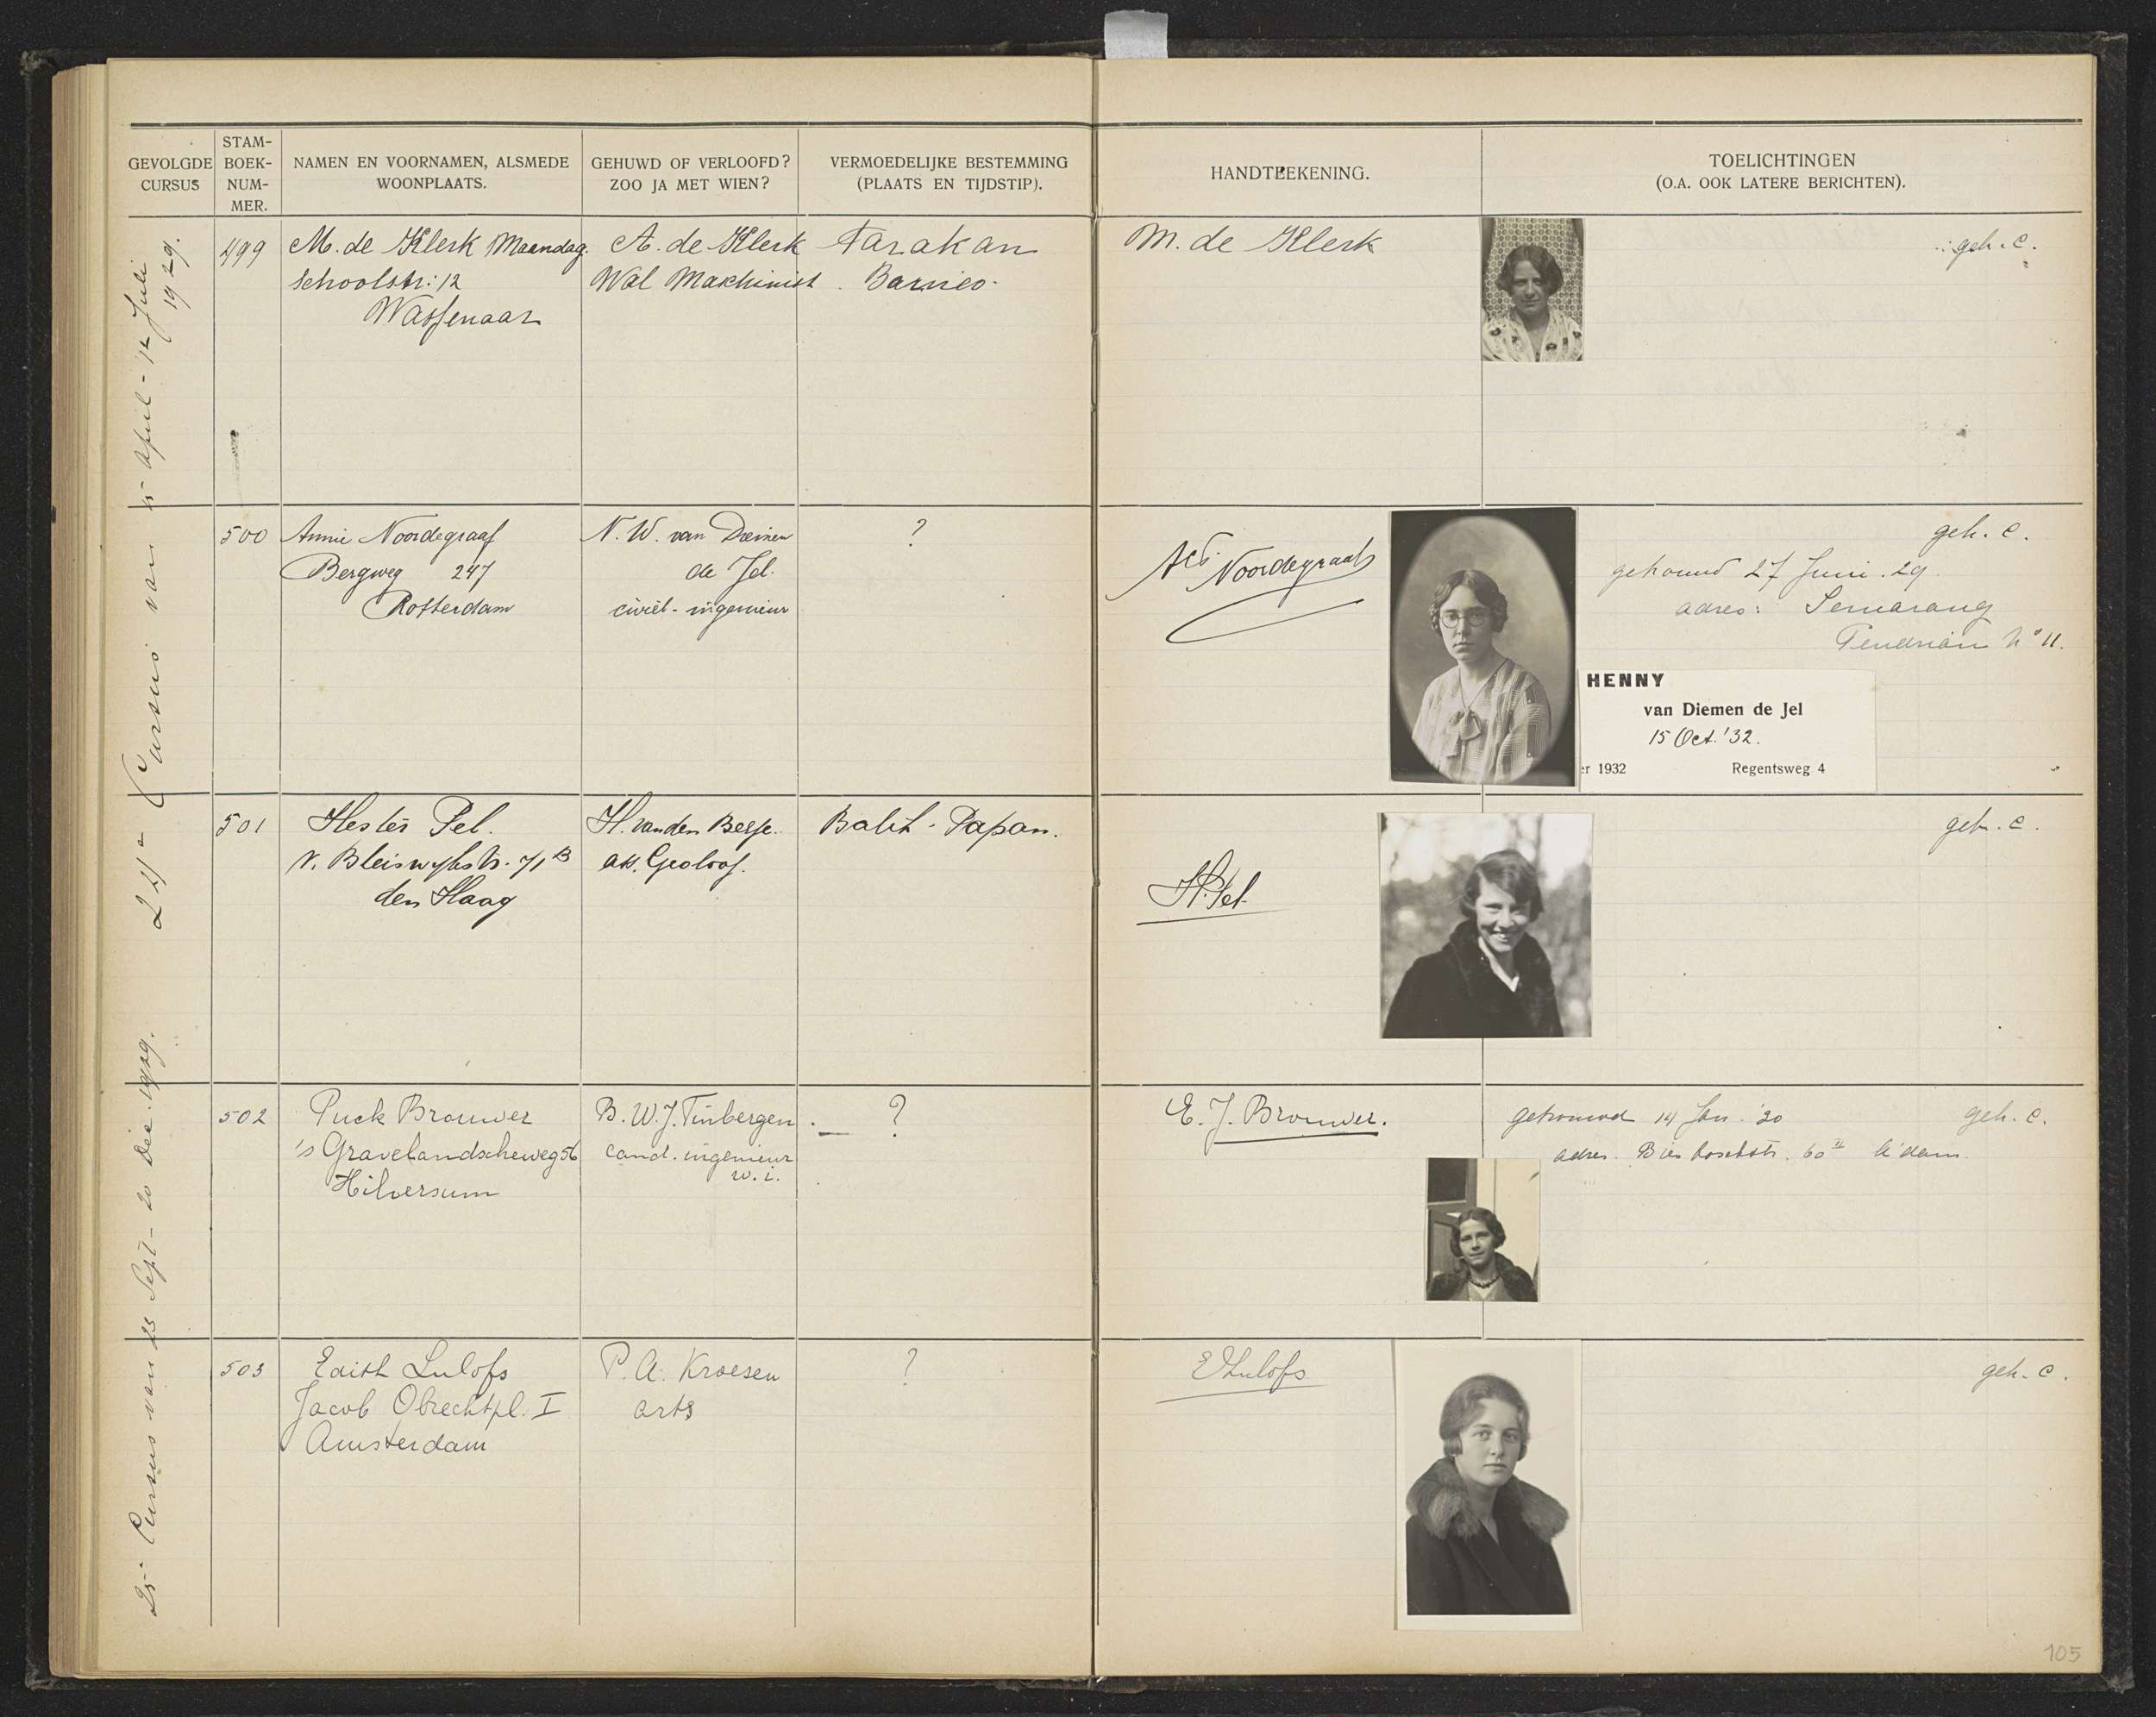 GEVOLGDE
CURSUS
STAM-
BOEK-
NUM-
MER.
NAMEN EN VOORNAMEN, ALSMEDE
WOONPLAATS.
GEHUWD OF VERLOOFD?
ZOO JA MET WIEN?
VERMOEDELIJKE BESTEMMING
(PLAATS EN TIJDSTIP).
HANDTEEKENING.
TOELICHTINGEN
(O.A. OOK LATERE BERICHTEN).
24e Cursus van 15 April - 12 Juli
1929.
499
M. de Klerk Maandag.
Schoolstr: 12
Wassenaar
A. de Klerk
Wal Machinist
Tarakan
Borneo.
M. de Klerk
geh. c.
500
Annie Noordegraaf
Bergweg 247
Rotterdam
N. W. van Diemen
de Jel.
civiel-ingenieur
?
Noordegraaf
geh. c.
getrouwd 27 Juni. 29
adres: Semarang
Pendrian No 11.
HENNY
van Diemen de Jel
15 Oct. '32.
er 1932
Regentsweg 4
501
Hester Pel.
v. Bleiswykstr. 71 B
den Haag
H. van den Besse.
ass. Geoloog.
Balik-Papan.
H. Pel
geh. c.
25e Cursus van 23 Sept - 20 Dec. 1929.
502
Puck Brouwer
's Gravelandscheweg 56
Hilversum
B. W. J. Tinbergen
cand. ingenieur
w. i.
?
E. J. Brouwer.
getrouwd 14 Jan. '30
geh. c.
adres. Biesboschstr. 60 II A'dam.
503
Edith Lulofs
Jacob Obrechtpl. I
Amsterdam
P. A. Kroesen
arts
?
E Lulofs
geh. c.
105